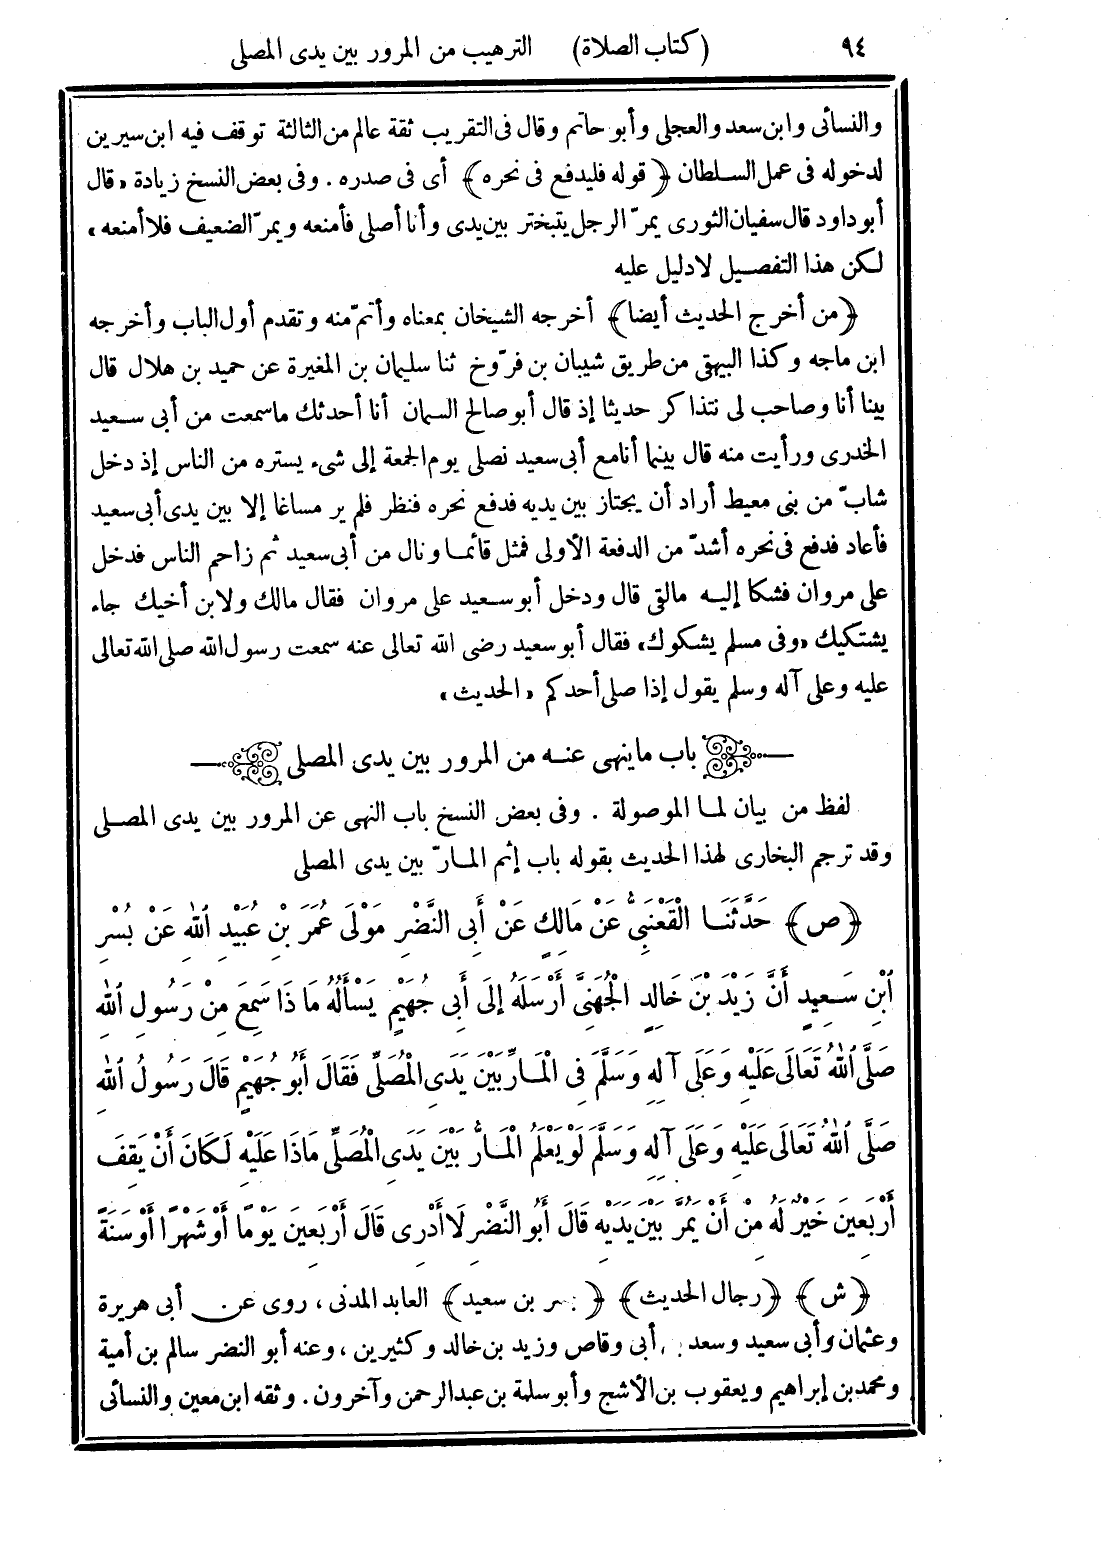 ٩٤ (كتاب الصلاة) الترهيب من المرور بين يدى المصلى
والنسائى وابن سعد والعجلى وأبو حاتم وقال فى التقريب ثقة عالم من الثالثة توقف فيه ابن سيرين
لدخوله فى عمل السلطان ﴿قوله فليدفع فى نحره﴾ أى فى صدره. وفى بعض النسخ زيادة «قال
أبو داود قال سفيان الثورى يمرّ الرجل يتبختر بين يدى وأنا أصلى فأمنعه ويمرّ الضعيف فلا أمنعه»
لكن هذا التفصيل لا دليل عليه
﴿من أخرج الحديث أيضا﴾ أخرجه الشيخان بمعناه وأتمّ منه وتقدم أول الباب وأخرجه
ابن ماجه وكذا البيهقى من طريق شيبان بن فرّوخ ثنا سليمان بن المغيرة عن حميد بن هلال قال
بينا أنا وصاحب لى نتذاكر حديثا إذ قال أبو صالح السمان أنا أحدثك ما سمعت من أبى سعيد
الخدرى ورأيت منه قال بينما أنا مع أبى سعيد نصلى يوم الجمعة إلى شىء يستره من الناس إذ دخل
شابّ من بنى معيط أراد أن يجتاز بين يديه فدفع نحره فنظر فلم ير مساغا إلا بين يدى أبى سعيد
فأعاد فدفع فى نحره أشدّ من الدفعة الأولى فمثل قائما ونال من أبى سعيد ثم زاحم الناس فدخل
على مروان فشكا إليه مالقى قال ودخل أبو سعيد على مروان فقال مالك ولابن أخيك جاء
يشتكيك «وفى مسلم يشكوك» فقال أبو سعيد رضى الله تعالى عنه سمعت رسول الله صلى الله تعالى
عليه وعلى آله وسلم يقول إذا صلى أحدكم «الحديث»
باب ما ينهى عنه من المرور بين يدى المصلى
لفظ من بيان لما الموصولة. وفى بعض النسخ باب النهى عن المرور بين يدى المصلى
وقد ترجم البخارى لهذا الحديث بقوله باب إثم المارّ بين يدى المصلى
﴿ص﴾ حَدَّثَنَا الْقَعْنَبِىُّ عَنْ مَالِكٍ عَنْ أَبِى النَّضْرِ مَوْلَى عُمَرَ بْنِ عُبَيْدِ اللهِ عَنْ بُسْرِ
ابْنِ سَعِيدٍ أَنَّ زَيْدَ بْنَ خَالِدٍ الْجُهَنِىَّ أَرْسَلَهُ إِلَى أَبِى جُهَيْمٍ يَسْأَلُهُ مَاذَا سَمِعَ مِنْ رَسُولِ اللهِ
صَلَّى اللهُ تَعَالَى عَلَيْهِ وَعَلَى آلِهِ وَسَلَّمَ فِى الْمَارِّ بَيْنَ يَدَىِ الْمُصَلِّى فَقَالَ أَبُو جُهَيْمٍ قَالَ رَسُولُ اللهِ
صَلَّى اللهُ تَعَالَى عَلَيْهِ وَعَلَى آلِهِ وَسَلَّمَ لَوْ يَعْلَمُ الْمَارُّ بَيْنَ يَدَىِ الْمُصَلِّى مَاذَا عَلَيْهِ لَكَانَ أَنْ يَقِفَ
أَرْبَعِينَ خَيْرٌ لَهُ مِنْ أَنْ يَمُرَّ بَيْنَ يَدَيْهِ قَالَ أَبُو النَّضْرِ لَا أَدْرِى قَالَ أَرْبَعِينَ يَوْمًا أَوْ شَهْرًا أَوْ سَنَةً
﴿ش﴾ ﴿رجال الحديث﴾ ﴿بسر بن سعيد﴾ العابد المدنى، روى عن أبى هريرة
وعثمان وأبى سعيد وسعد بن أبى وقاص وزيد بن خالد وكثيرين، وعنه أبو النضر سالم بن أمية
ومحمد بن إبراهيم ويعقوب بن الأشج وأبو سلمة بن عبد الرحمن وآخرون. وثقه ابن معين والنسائى